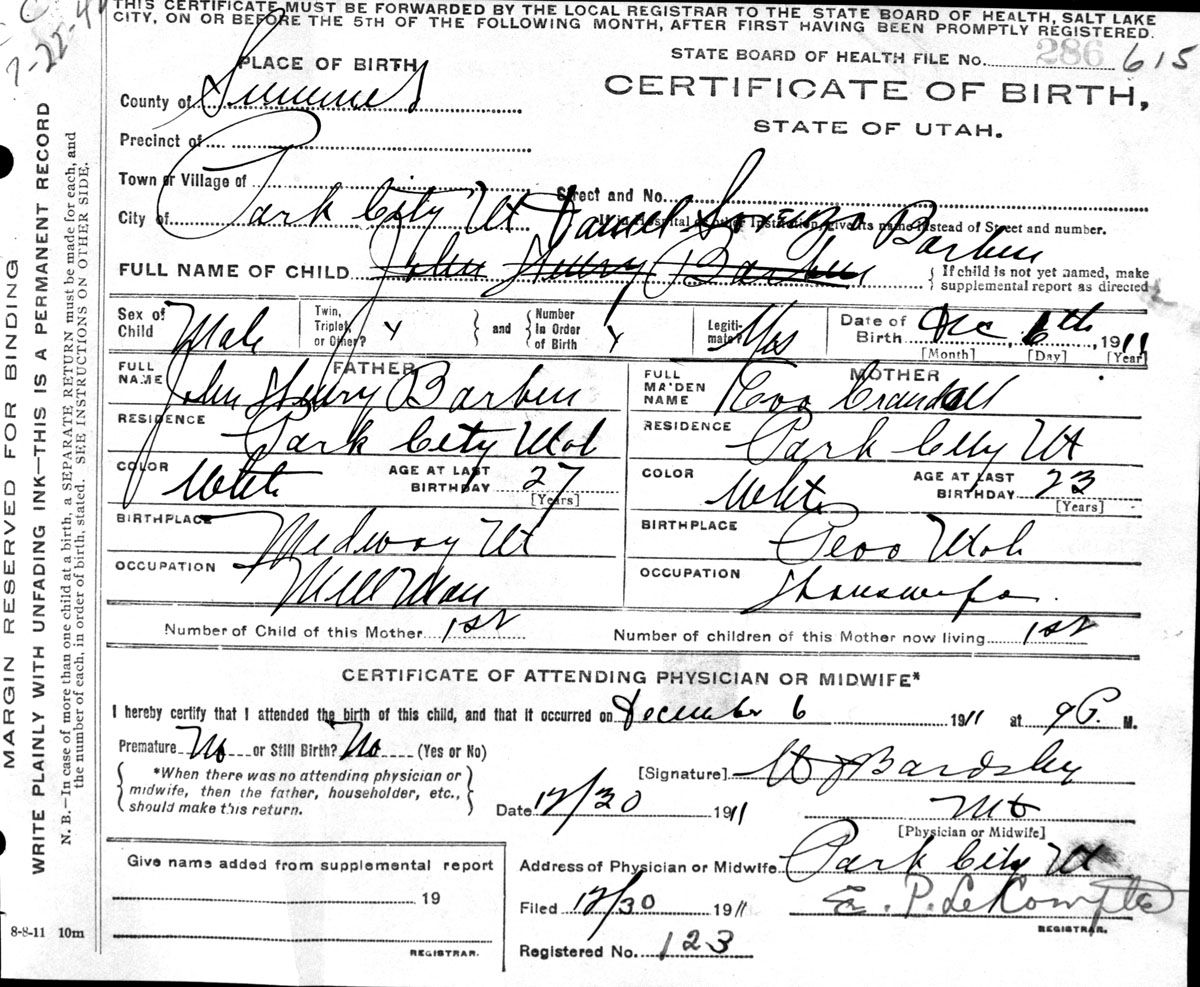 THIS CERTIFICATE MUST BE FORWARDED BY THE LOCAL REGISTRAR TO THE STATE BOARD OF HEALTH, SALT LAKE
CITY, ON OR BEFORE THE 5TH OF THE FOLLOWING MONTH, AFTER FIRST HAVING BEEN PROMPTLY REGISTERED.
STATE BOARD OF HEALTH FILE No. 286 615
7-22-4
PLACE OF BIRTH
CERTIFICATE OF BIRTH,
County of Summit
STATE OF UTAH.
Precinct of
Town or Village of
Street and No.
City of Park City Ut
If in Hospital or other Institution, give its name instead of Street and number.
Daniel Barben
FULL NAME OF CHILD John Henry Barben
If child is not yet named, make supplemental report as directed
Sex of Child Male Twin, Triplet, or Other? x and Number In Order of Birth x Legitimate? Yes Date of Birth Dec 6th, 1911
[Month] [Day] [Year]
FATHER
MOTHER
FULL NAME John Henry Barben
FULL MAIDEN NAME Eva Crandall
RESIDENCE Park City Utah
RESIDENCE Park City Ut
COLOR White AGE AT LAST BIRTHDAY 27 [Years]
COLOR White AGE AT LAST BIRTHDAY 23 [Years]
BIRTHPLACE Midway Ut
BIRTHPLACE Peoa Utah
OCCUPATION Mill Man
OCCUPATION Housewife
Number of Child of this Mother 1st Number of children of this Mother now living 1st
CERTIFICATE OF ATTENDING PHYSICIAN OR MIDWIFE*
I hereby certify that I attended the birth of this child, and that it occurred on December 6 1911 at 9 P. M.
Premature No or Still Birth? No (Yes or No)
*When there was no attending physician or midwife, then the father, householder, etc., should make this return.
[Signature] W J Bardsley
Date 12/30 1911
MD
[Physician or Midwife]
Give name added from supplemental report
Address of Physician or Midwife Park City Ut
19
Filed 12/30 1911
E. P. LeCompte
REGISTRAR.
Registered No. 123
REGISTRAR.
8-8-11 10m
MARGIN RESERVED FOR BINDING
WRITE PLAINLY WITH UNFADING INK—THIS IS A PERMANENT RECORD
N. B.—In case of more than one child at a birth, a SEPARATE RETURN must be made for each, and
the number of each, in order of birth, stated. SEE INSTRUCTIONS ON OTHER SIDE.